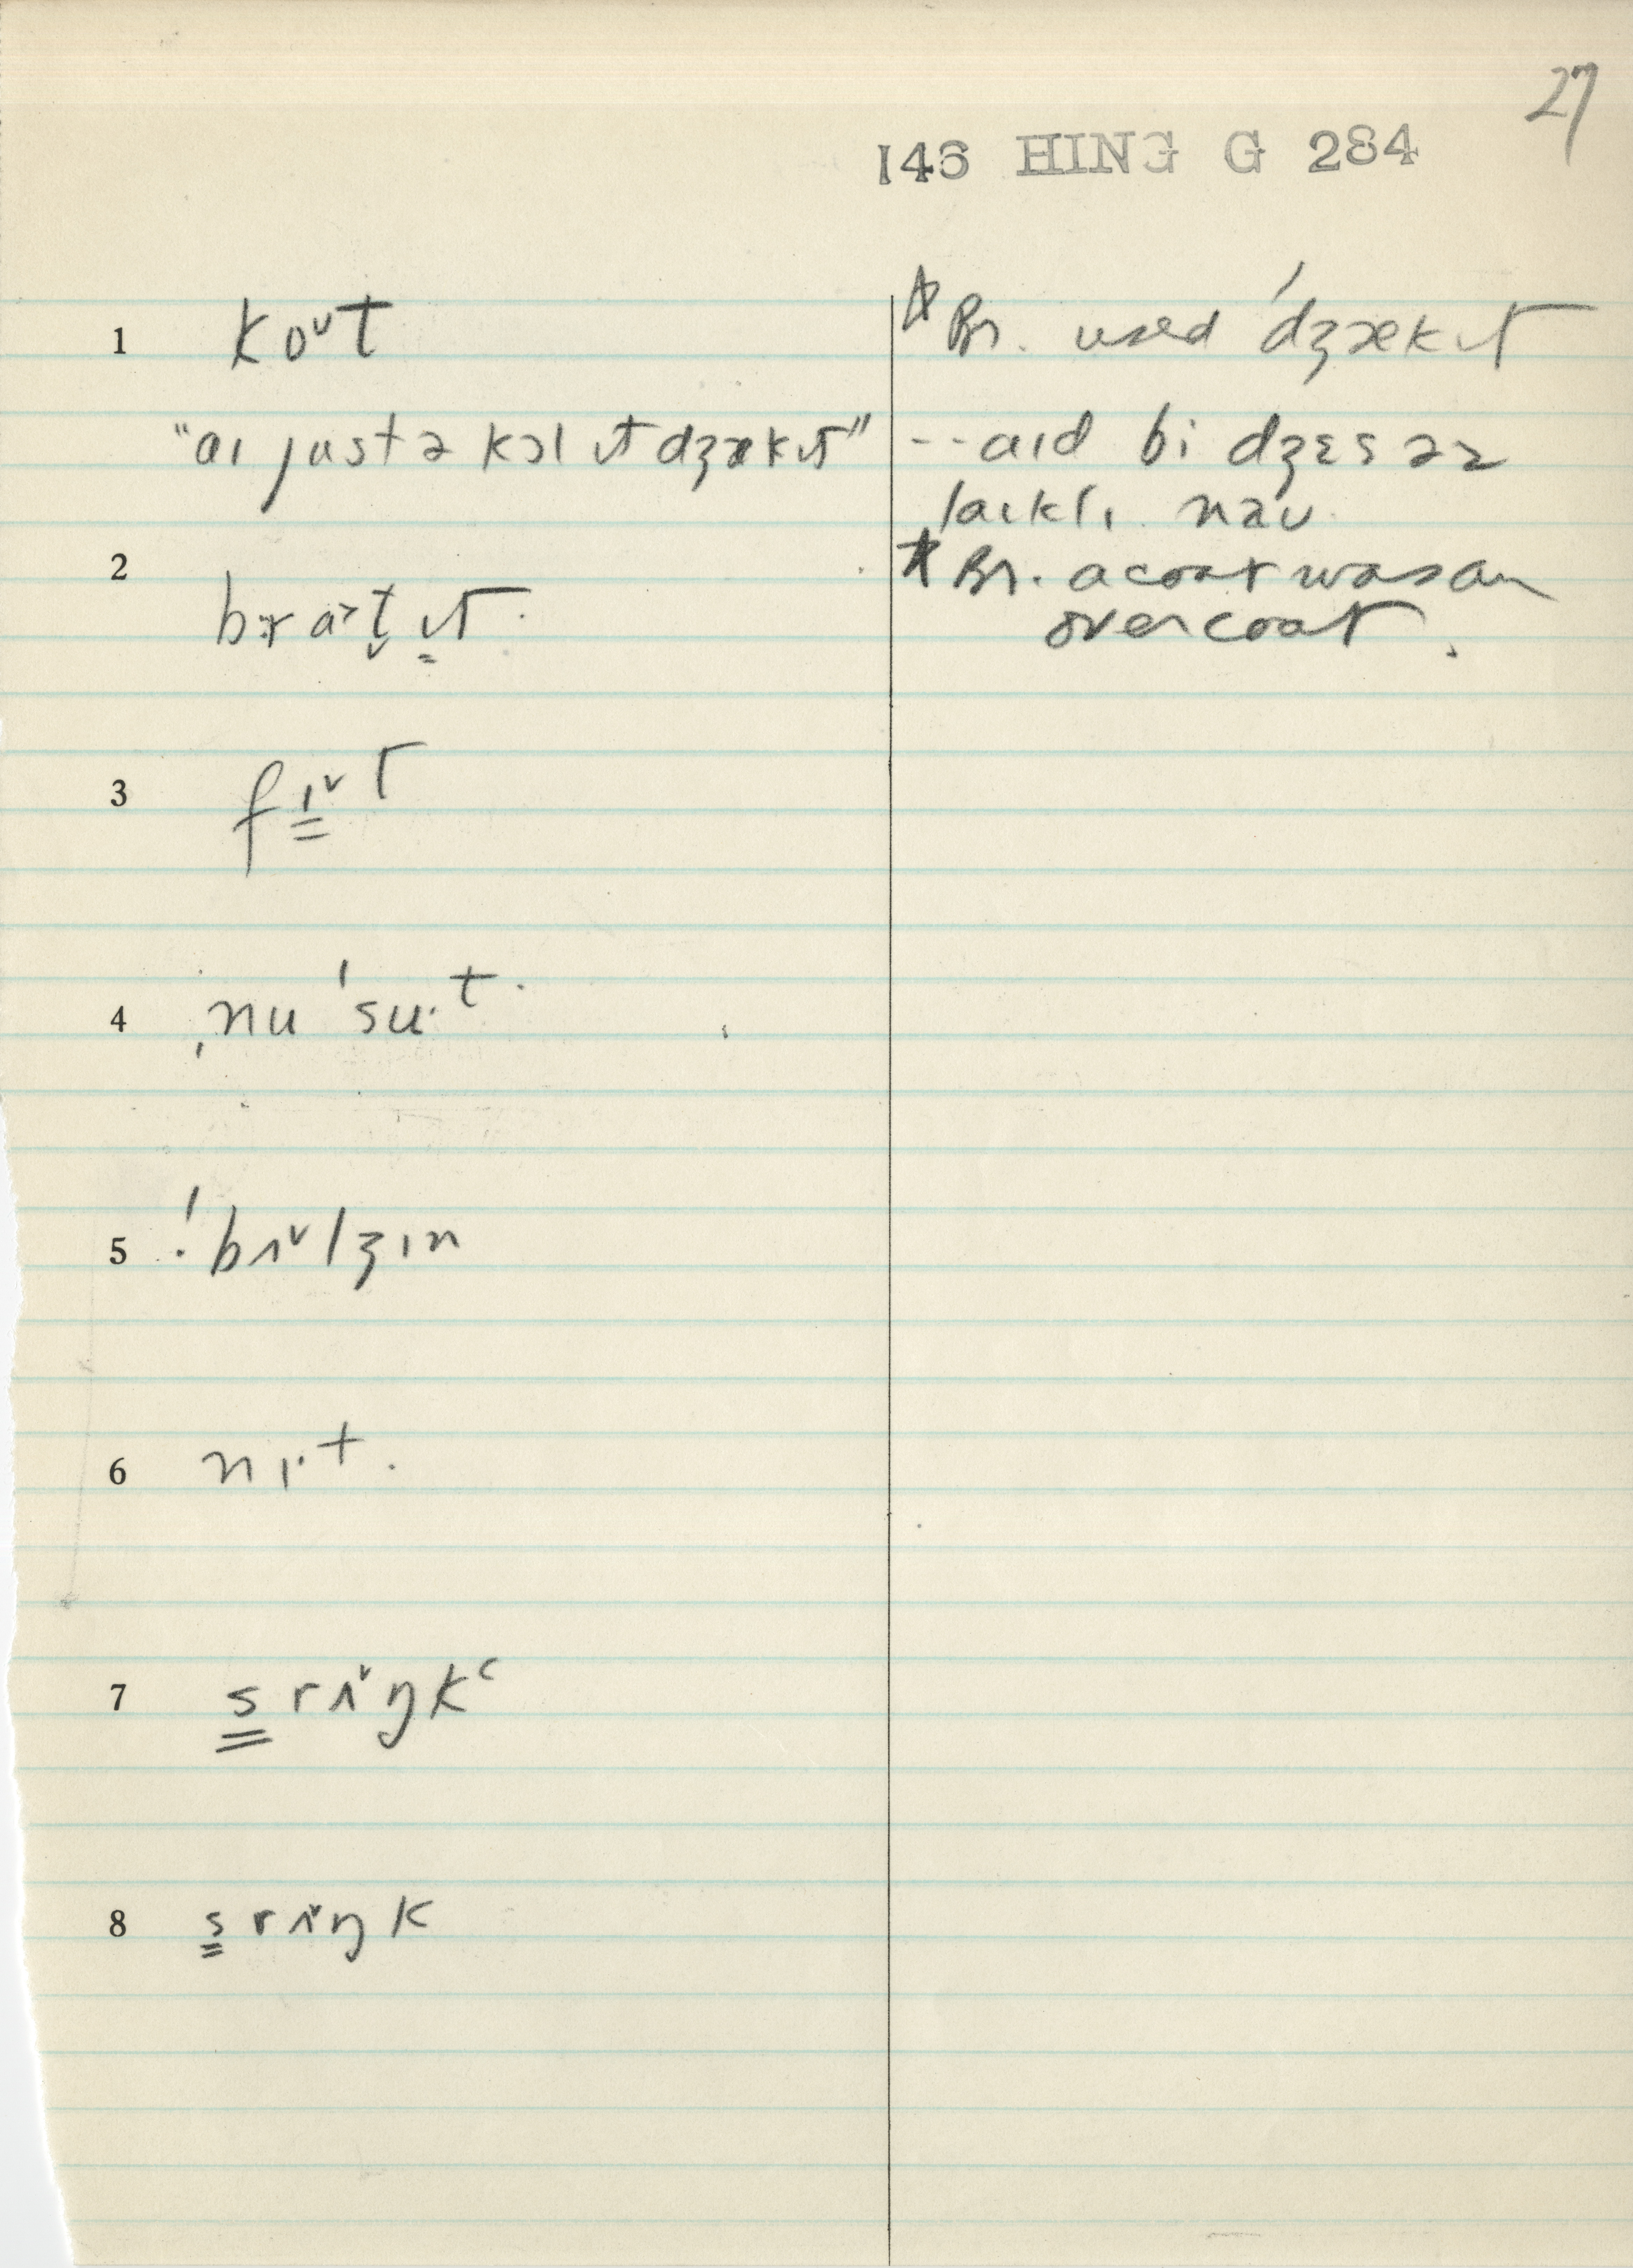 27
146 HING G 284
1 koᶷt
"aɪ just ə kɔl ɪt dʒækɪt"
2 brɑ˃t̬ɪ̳t
3 fɪ̳˅t
4 ˌnu ˈsu·t
5 ˈbrɪ˅lʒɪn
6 nɪ·t
7 s̳rɪ˅ŋkʿ
8 s̳rɪ˅ŋk
* Br. used ˈdʒækɪt
--aɪd bi dʒɛs əz
laɪklɪ naʊ
* Br. a coat was an
overcoat.